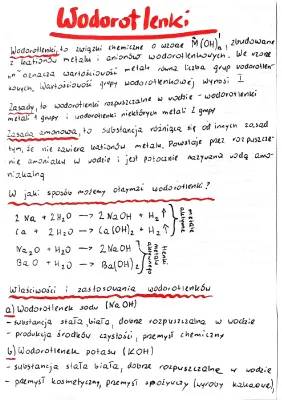 Wodorotlenki
Wodorotlenki, to związki chemiczne o wzorze M(OH)ₙᴵ, zbudowane
z kationów metalu i anionów wodorotlenkowych. We wzorze
"n" oznacza wartościowość metalu równą liczbie grup wodorotlen-
kowych. Wartościowość grupy wodorotlenkowej wynosi I.
Zasady, to wodorotlenki rozpuszczalne w wodzie - wodorotlenki
metali 1 grupy i wodorotlenki niektórych metali 2 grupy
Zasada amonowa, to substancja różniąca się od innych zasad
tym, że nie zawiera kationów metalu. Powstaje przez rozpuszcze-
nie amoniaku w wodzie i jest potocznie nazywana wodą amo-
niakalną
W jaki sposób możemy otrzymać wodorotlenki?
2 Na + 2H₂O → 2 NaOH + H₂↑
Ca + 2H₂O → Ca(OH)₂ + H₂↑
metale aktywne
Na₂O + H₂O → 2 NaOH
BaO + H₂O → Ba(OH)₂
tlenki metalu aktywnego
Właściwości i zastosowania wodorotlenków
a) Wodorotlenek sodu (NaOH)
- substancja stała, biała, dobrze rozpuszczalna w wodzie
- produkcja środków czystości, przemysł chemiczny
b) Wodorotlenek potasu (KOH)
- substancja stała biała, dobrze rozpuszczalna w wodzie
- przemysł kosmetyczny, przemysł spożywczy (wyroby kakaowe),